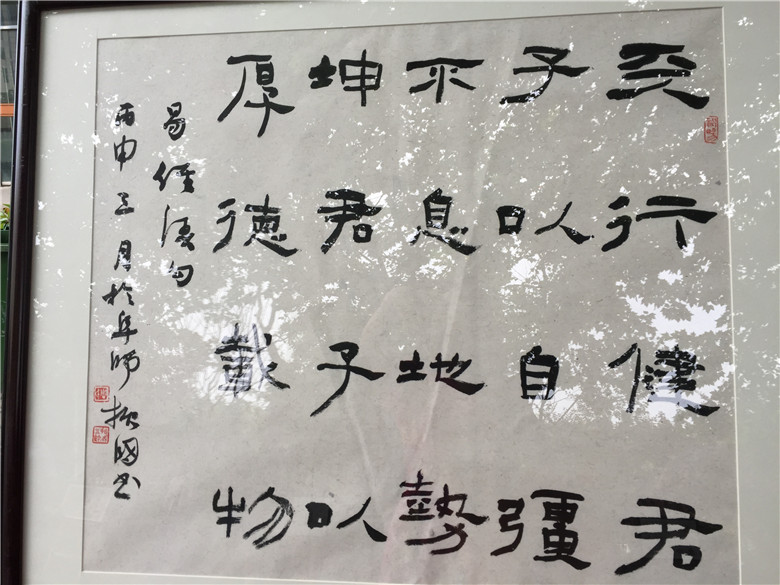 天行健君
子以自彊
不息地勢
坤君子以
厚德載物
易經语句
丙申三月於阜師振國书